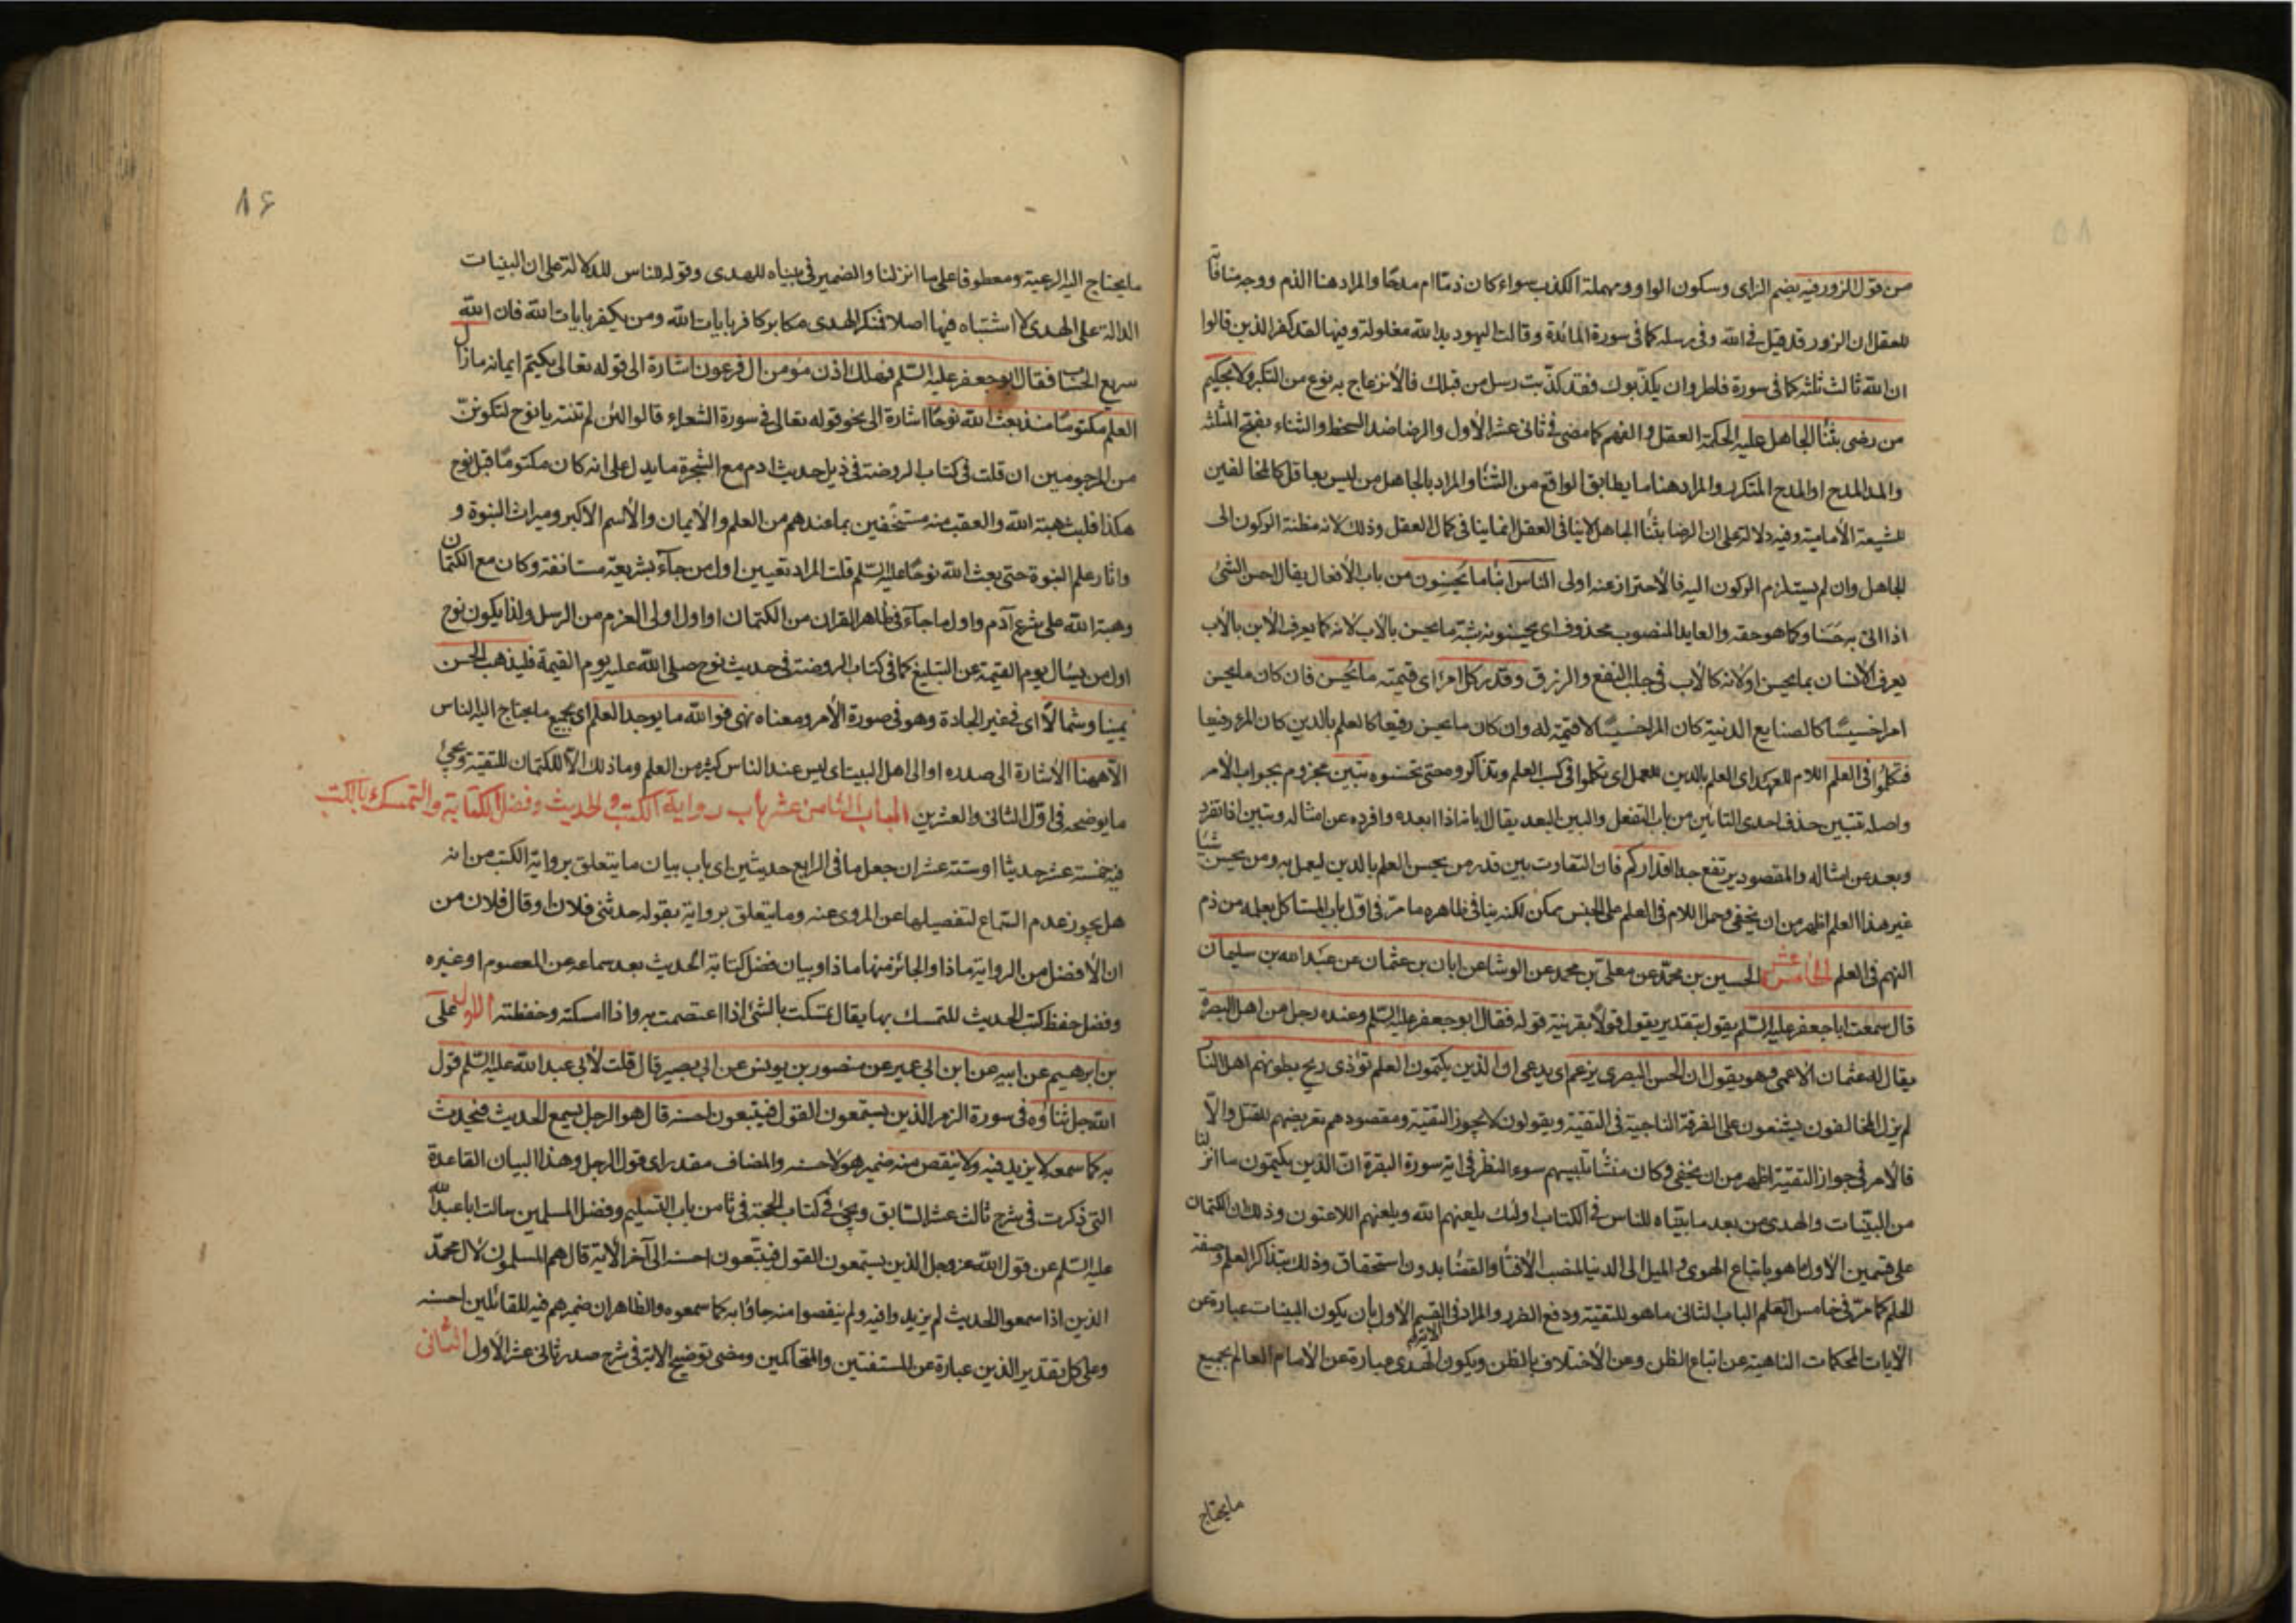 من قول الزور فيه بضم الزاى وسكون الواو ومهملة الكذب سواء كان ذمّا ام مدحًا والمراد هنا الذم ووجه منافاته
للعقل ان الزور قد قيل فى الله وفى رسله كما فى سورة المائدة وقالت اليهود يد الله مغلولة وفيها لقد كفر الذين قالوا
ان الله ثالث ثلثة كما فى سورة فاطر وان يكذّبوك فقد كذّبت رسل من قبلك فالانزعاج به نوع من التكبر ولا بحكيم
من رضى بثنا الجاهل عليه الحكمة العقل و الفهم كما مضى فى ثانى عشر الأول والرضا ضد السخط والثناء بفتح المثلثة
والمد المدح او المدح المتكرر والمراد هنا ما يطابق الواقع من الثنا والمراد بالجاهل من ليس بعاقل كالمخالفين
للشيعة الأمامية وفيه دلالة على ان الرضا بثنا الجاهل لا ينافى العقل انما ينافى كمال العقل وذلك لانه مظنة الركون الى
الجاهل وان لم يستلزم الركون اليه فالأحتراز عنه اولى الناس ابنا ما يحسنون من باب الأفعال يقال احسن الشئ
اذا اتى به حسنا وكما هو حقه والعايد المنصوب محذوف اى يحسنونه شبّه ما يحسن بالأب لانه كما يعرف الأبن بالأب
يعرف الأنسان بما يحسن او لأنه كالأب فى جلب النفع والرزق وقدر كل امرء اى قيمته ما يحسن فان كان ما يحسن
امرا خسيسًا كالصنايع الدنية كان المرأ خسيسًا لا قيمة له وان كان ما يحسن رفيعا كالعلم بالدين كان المرء رفيعا
فتكلموا فى العلم اللام للعهد اى العلم بالدين للعمل اى تكلموا فى كسب العلم وتذاكروه حتى تحسنوه تبين مجزوم بجواب الأمر
واصله تتبين حذف احدى التائين من باب التفعل والبين البعد يقال ابانه اذا ابعده وافرده عن امثاله وتبين اذا تفرد
وبعد عن امثاله والمقصود يرتفع جدا اقداركم فان التفاوت بين قدر من يحسن العلم بالدين ليعمل به ومن يحسن شيئا
غير هذا العلم اظهر من ان يخفى وحمل اللام فى العلم على الجنس ممكن لكنه ينافى ظاهره ما مرّ فى اوّل باب المستاكل بعلمه من ذم
النهم فى العلم الخامس عشر الحسين بن محمّد عن معلى بن محمد عن الوشا عن ابان بن عثمان عن عبد الله بن سليمان
قال سمعت ابا جعفر عليه السّلم يقول بتقدير يقول قولًا بقرينة قوله فقال ابو جعفر عليه السّلم وعنده رجل من اهل البصرة
يقال له عثمان الأعمى وهو يقول ان الحسن البصرى يزعم اى يدعى ان الذين يكتمون العلم تؤذى ريح بطونهم اهل النا
لم يزل المخالفون يشنعون على الفرقة الناجية فى التقية ويقولون لا يجوز التقية ومقصودهم تعريضهم للقتل والّا
فالأمر فى جواز التقية اظهر من ان يخفى وكان منشأ تلبيسهم سوء النظر فى اية سورة البقرة انّ الذين يكتمون ما انزلنا
من البيّنات والهدى من بعد ما بيّنّاه للناس فى الكتاب اولئك يلعنهم الله ويلعنهم اللاعنون وذلك ان الكتمان
على قسمين الأول ما هو باتباع الهوى و الميل الى الدنيا لمنصب الأفتأ والقضا بدون استحقاق وذلك بتذاكر العلم وصفة
الحلم كما مرّ فى خامس العلم الباب الثانى ما هو للتقية ودفع الضرر والمراد فى الآية القسم الأول بان يكون البينات عبارة عن
الآيات المحكمات الناهية عن اتباع الظن وعن الأختلاف بالظن ويكون الهدى عبارة عن الأمام العالم بجميع
مايحتاج
٨٦
ما يحتاج اليه الرعية ومعطوفا على ما انزلنا والضمير فى بيناه للهدى وقوله للناس للدلالة على ان البينات
الدالة على الهدى لا اشتباه فيها اصلا فمنكر الهدى مكابر وكافر بايات الله ومن يكفر بايات الله فان الله
سريع الحساب فقال ابو جعفر عليه السّلم فهلك اذن مؤمن ال فرعون اشارة الى قوله تعالى يكتم ايمانه ما زال
العلم مكتوما منذ بعث الله نوحًا اشارة الى نحو قوله تعالى فى سورة الشعراء قالوا لئن لم تنته يا نوح لتكوننّ
من المرجومين ان قلت فى كتاب الروضة فى ذيل حديث ادم مع الشجرة ما يدل على انه كان مكتومًا قبل نوح
هكذا فلبث هبة الله والعقب منه مستخفين بما عندهم من العلم و الأيمان والأسم الأكبر وميراث النبوة و
واثار علم النبوة حتى بعث الله نوحًا عليه السّلم قلت المراد تعيين اول من جآء بشريعة مستانفة وكان مع الكتمان
وهبة الله على شرع آدم واول ما جآء فى ظاهر القران من الكتمان او اول اولى العزم من الرسل ولذا يكون نوح
اول من يسأل يوم القيمة عن التبليغ كما فى كتاب الروضة فى حديث نوح صلى الله عليه يوم القيمة فليذهب الحسن
يمينا وشمالًا اى فى غير الجادة وهو فى صورة الأمر ومعناه نهى فوالله ما يوجد العلم اى جميع ما يحتاج اليه الناس
الّا ههنا الأشارة الى صدره او الى اهل البيت اى ليس عند الناس كثير من العلم وما ذلك الّا للكتمان للتقية ويجئ
ما يوضحه فى اوّل الثانى والعشرين الباب الثامن عشر باب رواية الكتب و الحديث وفضل الكتابة والتمسك بالكتب
فيه خمسة عشر حديثا او ستة عشر ان جعل ما فى الرابع حديثين اى باب بيان ما يتعلق برواية الكتب من انه
هل يجوز عدم السّماع لتفصيلها عن المروى عنه وما يتعلق برواية بقوله حدثنى فلان او قال فلان من
ان الأفضل من الرواية ماذا والجائز منها ماذا وبيان فضل كتابة الحديث بعد سماعه عن المعصوم او غيره
وفضل حفظ كتب الحديث للتمسك بها يقال تمسّكت بالشئ اذا اعتصمت به واذا امسكته وحفظته الاول على
بن ابرهيم عن ابيه عن ابن ابى عمير عن منصور بن يونس عن ابى بصير قال قلت لأبى عبد الله عليه السّلم قول
الله جل ثناؤه فى سورة الزمر الذين يستمعون القول فيتبعون احسنه قال هو الرجل يسمع الحديث فيحدث
به كما سمعه لا يزيد فيه ولا ينقص منه ضمير هو لأحسنه والمضاف مقدر اى قول الرجل وهذا البيان القاعدة
التى ذكرت فى شرح ثالث عشر السّابق ويجئ فى كتاب الحجة فى ثامن باب التسليم وفضل المسلمين سالت ابا عبد الله
عليه السّلم عن قول الله عز وجل الذين يستمعون القول فيتّبعون احسنه الى آخر الآية قال هم المسلمون لآل محمّد
الذين اذا سمعوا الحديث لم يزيدوا فيه ولم ينقصوا منه جاؤا به كما سمعوه والظاهر ان ضمير هم فيه للقائلين احسنه
وعلى كل تقدير الذين عبارة عن المستفتين والمتحاكمين ومضى توضيح الآية فى شرح صدر ثانى عشر الأول الثانى